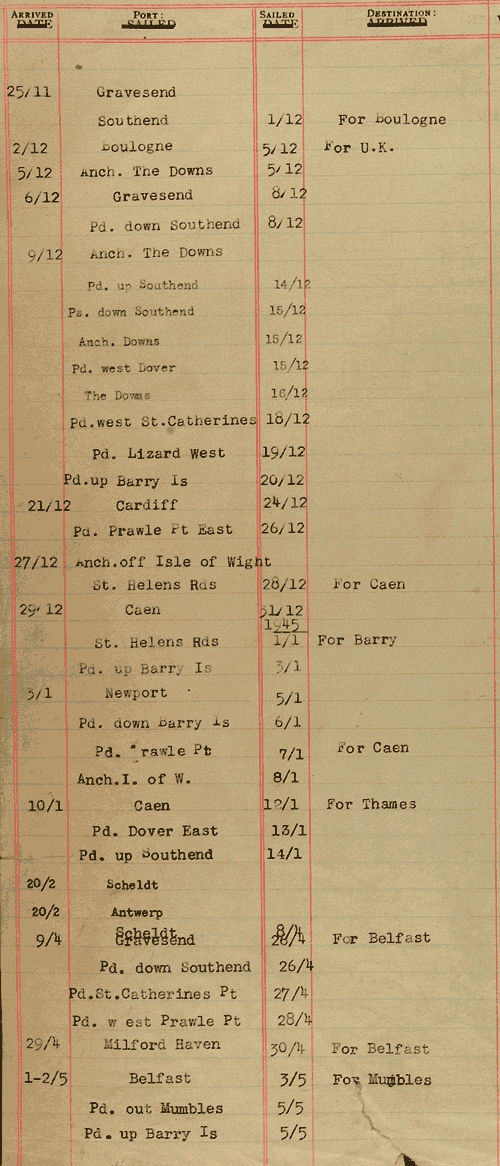 ARRIVED DATE PORT: SAILED SAILED DATE DESTINATION: ARRIVED
25/11 Gravesend
Southend 1/12 For Boulogne
2/12 Boulogne 5/12 For U.K.
5/12 Anch. The Downs 5/12
6/12 Gravesend 8/12
Pd. down Southend 8/12
9/12 Anch. The Downs
Pd. up Southend 14/12
Ps. down Southend 15/12
Anch. Downs 15/12
Pd. west Dover 15/12
The Downs 16/12
Pd.west St.Catherines 18/12
Pd. Lizard West 19/12
Pd.up Barry Is 20/12
21/12 Cardiff 24/12
Pd. Prawle Pt East 26/12
27/12 Anch.off Isle of Wight
St. Helens Rds 28/12 For Caen
29/12 Caen 31/12
1945
St. Helens Rds 1/1 For Barry
Pd. up Barry Is 3/1
3/1 Newport 5/1
Pd. down Barry Is 6/1
Pd. rawle Pt 7/1 For Caen
Anch.I. of W. 8/1
10/1 Caen 12/1 For Thames
Pd. Dover East 13/1
Pd. up Southend 14/1
20/2 Scheldt
20/2 Antwerp
Scheldt 8/4
9/4 Gravesend 26/4 For Belfast
Pd. down Southend 26/4
Pd.St.Catherines Pt 27/4
Pd. w est Prawle Pt 28/4
29/4 Milford Haven 30/4 For Belfast
1-2/5 Belfast 3/5 For Mumbles
Pd. out Mumbles 5/5
Pd. up Barry Is 5/5